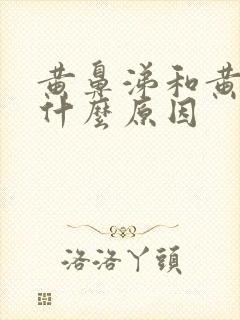 黄鼻涕和黄
什麼原因
洛洛丫頭